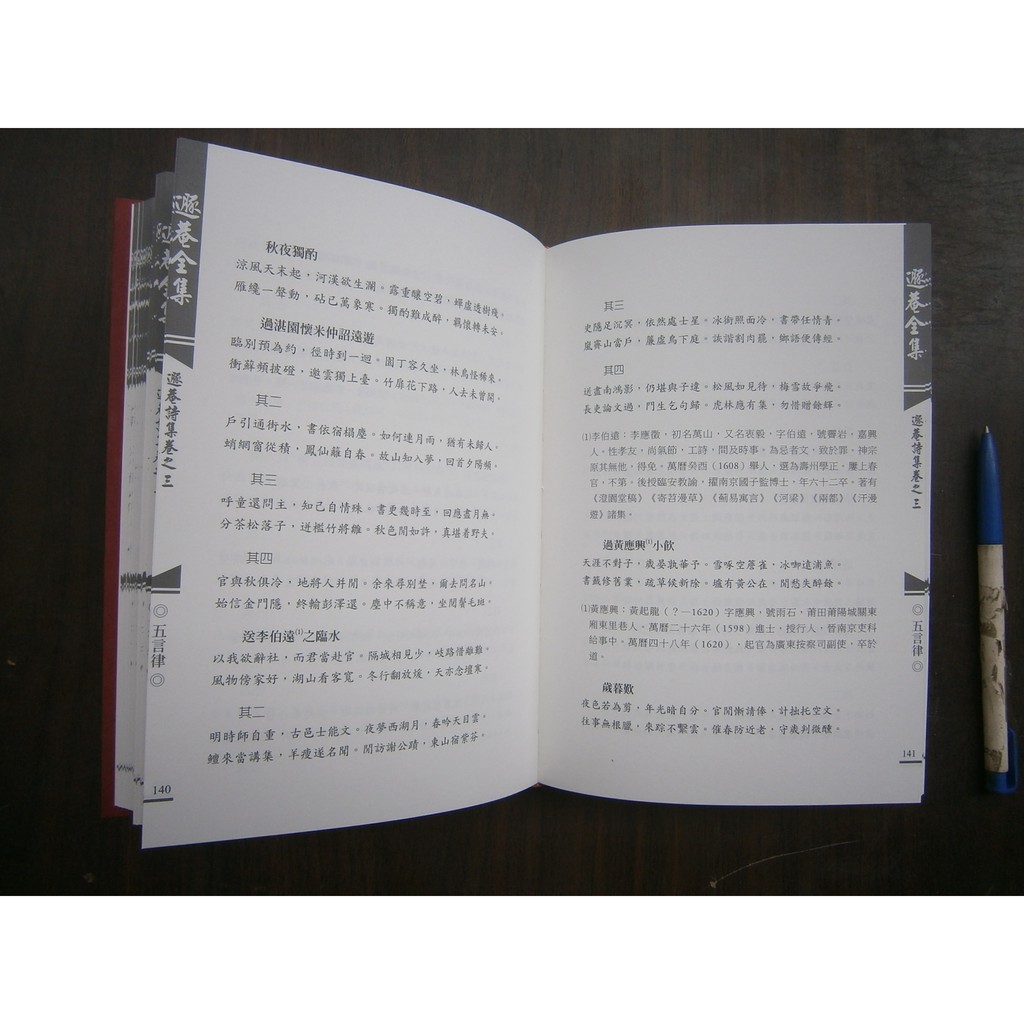 遯菴全集
遯菴詩集卷之三
◎五言律◎
140
秋夜獨酌
涼風天末起，河漢欲生瀾。露重釀空碧，蟬虛透樹殘。
雁纔一聲動，砧已萬象寒。獨酌難成醉，羈懷轉未安。
過湛園懷米仲詔遠遊
臨別預為約，徑時到一迴。園丁容久坐，林鳥怪稀來。
衝蘚頻披磴，邀雲獨上臺。竹扉花下路，人去未曾開。
其二
戶引通術水，書依宿榻塵。如何連月雨，猶有未歸人。
蛸網窗從積，鳳仙蘿自春。故山知入夢，回首夕陽頻。
其三
呼童還問主，知己自情殊。書更幾時至，回應盡月無。
分茶松落子，迸檻竹將雛。秋色閒如許，真堪着野夫。
其四
官與秋俱冷，地將人并閒。余來尋別埜，爾去問名山。
始信金門隱，終輸彭澤還。塵中不稱意，坐閱鬢毛斑。
送李伯遠(1)之臨水
以我欲辭社，而君當赴官。隔城相見少，岐路惜離難。
風物傍家好，湖山看客寬。冬行翻放煖，天亦念壇寒。
其二
明時師自重，古邑士能文。夜夢西湖月，春吟天目雲。
鱣來當講集，羊瘦遂名聞。閒訪謝公蹟，東山宿紫芬。
遯菴全集
遯菴詩集卷之三
◎五言律◎
141
其三
吏隱足沉冥，依然處士星。冰銜照面冷，書帶任情青。
嵐霽山當戶，簾虛鳥下庭。詼諧割肉罷，鄉語便傳經。
其四
送盡南鴻影，仍堪與子違。松風如見待，梅雪故爭飛。
長吏論文過，門生乞句歸。虎林應有集，勿惜贈餘輝。
(1)李伯遠：李應徵，初名萬山，又名表毅，字伯遠，號霽岩，嘉興
人，性孝友，尚氣節，工詩，間及時事。為忌者文，致於罪。神宗
原其無他，得免。萬曆癸酉（1608）舉人，選為壽州學正。屢上春
官，不第。後授臨安教諭，擢南京國子監博士，年六十六卒。著有
《澄園堂稿》《寄苕漫草》《薊易寓言》《河梁》《兩都》《汗漫
遊》諸集。
過黃應興(1)小飲
天涯不對子，歲晏孰華子。雪啄空簷雀，冰呴遠浦魚。
書籤修舊業，疏草候新除。壚有黃公在，閒愁失醉餘。
(1)黃應興：黃起龍（？—1620）字應興，號雨石，莆田莆陽城關東
廂東里巷人。萬曆二十六年（1598）進士，授行人，晉南京吏科
給事中。萬曆四十八年（1620），起官為廣東按察司副使，卒於
道。
歲暮歎
夜色若為剪，年光暗自分。官閒慚請俸，計拙托空文。
往事無根臘，來踪不繫雲。催春防近老，守歲判微醺。